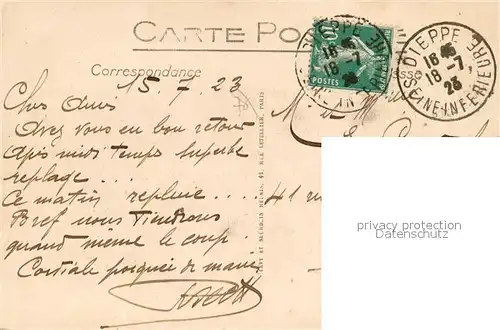 CARTE PO
Correspondance
15.7.23
Chers Amis
Avez vous eu bon retour
Après midi temps superbe
replage ...
Ce matin repluie ....
Bref nous tiendrons
quand même le coup.
Cordiale poignée de main
10
POSTES
DIEPPE
18
18-7
23
DIEPPE
18
18-7
23
SEINE-INFERIEURE
esse
M
41 rue
privacy protection
Datenschutz